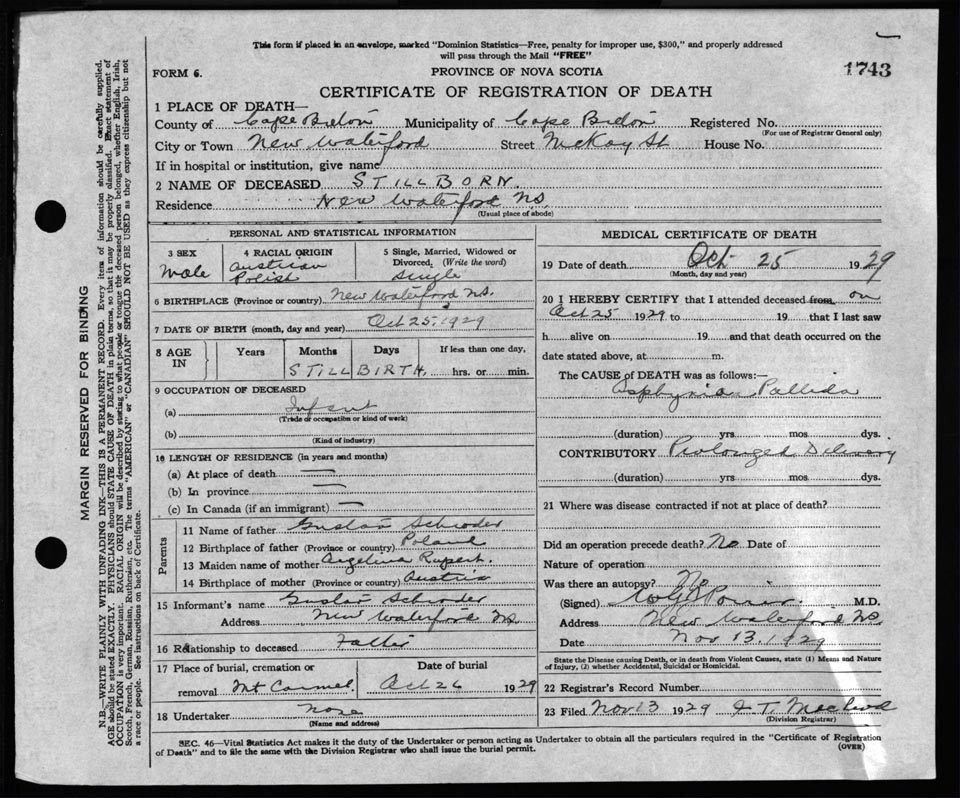 This form if placed in an envelope, marked "Dominion Statistics—Free, penalty for improper use, $300," and properly addressed
will pass through the Mail "FREE"
FORM 6.
PROVINCE OF NOVA SCOTIA
1743
CERTIFICATE OF REGISTRATION OF DEATH
1 PLACE OF DEATH—
County of Cape Breton Municipality of Cape Breton Registered No.
(For use of Registrar General only)
City or Town New Waterford Street McKay St House No.
If in hospital or institution, give name
2 NAME OF DECEASED STILLBORN.
Residence New Waterford N.S.
(Usual place of abode)
PERSONAL AND STATISTICAL INFORMATION
3 SEX
Male
4 RACIAL ORIGIN
Austrian
Polish
5 Single, Married, Widowed or
Divorced, (Write the word)
Single
6 BIRTHPLACE (Province or country) New Waterford N.S.
7 DATE OF BIRTH (month, day and year) Oct 25, 1929
8 AGE IN
Years Months Days If less than one day,
STILL BIRTH, hrs. or min.
9 OCCUPATION OF DECEASED
(a) Infant
(Trade or occupation or kind of work)
(b)
(Kind of industry)
10 LENGTH OF RESIDENCE (in years and months)
(a) At place of death —
(b) In province —
(c) In Canada (if an immigrant) —
Parents
11 Name of father Gustav Schroder
12 Birthplace of father (Province or country) Poland
13 Maiden name of mother Angelina Rupert.
14 Birthplace of mother (Province or country) Austria
15 Informant's name Gustav Schroder
Address New Waterford N.S.
16 Relationship to deceased Father
17 Place of burial, cremation or
removal Mt Carmel
Date of burial
Oct 26 1929
18 Undertaker None
(Name and address)
MEDICAL CERTIFICATE OF DEATH
19 Date of death Oct 25 1929
(Month, day and year)
20 I HEREBY CERTIFY that I attended deceased from on
Oct 25 1929 to 19 that I last saw
h alive on 19 and that death occurred on the
date stated above, at m.
The CAUSE OF DEATH was as follows:—
Asphyxia Pallida
(duration) yrs mos dys.
CONTRIBUTORY Prolonged Delivery
(duration) yrs. mos. dys.
21 Where was disease contracted if not at place of death?
Did an operation precede death? No Date of
Nature of operation
Was there an autopsy? No
(Signed) M.D.
Address New Waterford N.S.
Date Nov 13, 1929
State the Disease causing Death, or in death from Violent Causes, state (1) Means and Nature
of Injury, (2) whether Accidental, Suicidal or Homicidal.
22 Registrar's Record Number
23 Filed Nov 13 1929 J. T. MacLeod
(Division Registrar)
SEC. 46—Vital Statistics Act makes it the duty of the Undertaker or person acting as Undertaker to obtain all the particulars required in the "Certificate of Registration
of Death" and to file the same with the Division Registrar who shall issue the burial permit.
(OVER)
MARGIN RESERVED FOR BINDING
N.B.—WRITE PLAINLY WITH UNFADING INK—THIS IS A PERMANENT RECORD. Every item of information should be carefully supplied.
AGE should be stated EXACTLY. PHYSICIANS should STATE CAUSE OF DEATH in plain terms, so that it may be properly classified. Exact statement of
OCCUPATION is very important. RACIAL ORIGIN will be described by stating to what people or tongue the deceased person belonged, whether English, Irish,
Scotch, French, German, Russian, Ruthenian, etc. The terms "AMERICAN" or "CANADIAN" SHOULD NOT BE USED as they express citizenship but not
a race or people. See instructions on back of Certificate.